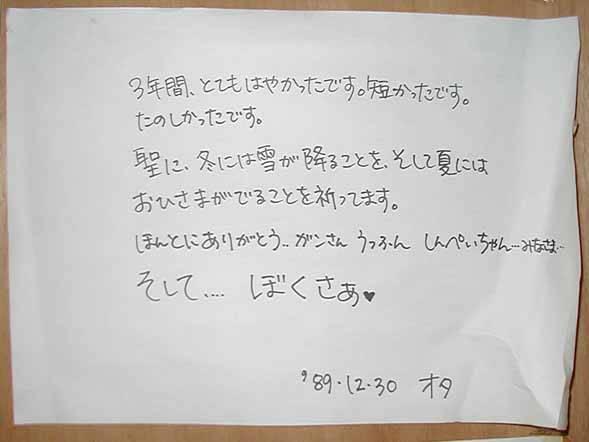 3年間、とてもはやかったです。短かったです。
たのしかったです。
聖に、冬には雪が降ることを、そして夏には
おひさまがでることを祈ってます。
ほんとにありがとう.. ガンさん うっふん しんぺいちゃん…みなさま…
そして.... ぼくさぁ♥
'89.12.30 オタ